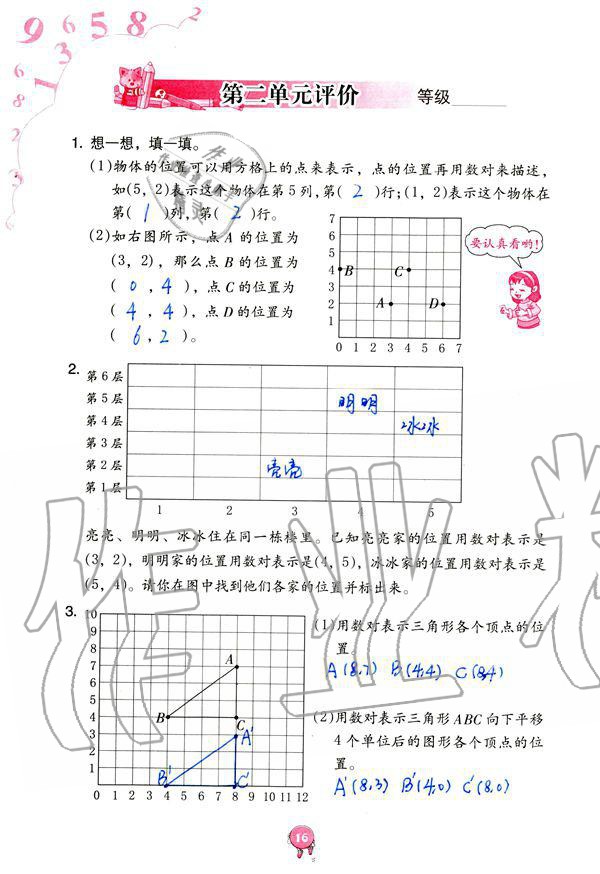 9 6 5 8 2
6 1 3
8
2
第二单元评价 等级
1. 想一想，填一填。
(1)物体的位置可以用方格上的点来表示，点的位置再用数对来描述，
如(5，2)表示这个物体在第5列，第( 2 )行；(1，2)表示这个物体在
第( 1 )列，第( 2 )行。
(2)如右图所示，点A的位置为
(3，2)，那么点B的位置为
( 0 , 4 )，点C的位置为
( 4 , 4 )，点D的位置为
( 6 , 2 )。
7
6
5
4 B C
3
2 A D
1
0 1 2 3 4 5 6 7
要认真看哟！
2.
第6层
第5层 明明
第4层 冰冰
第3层
第2层 亮亮
第1层
1 2 3 4 5
亮亮、明明、冰冰住在同一栋楼里。已知亮亮家的位置用数对表示是
(3，2)，明明家的位置用数对表示是(4，5)，冰冰家的位置用数对表示是
(5，4)。请你在图中找到他们各家的位置并标出来。
3.
10
9
8
7 A
6
5
4 B C
3 A'
2
1 B' C'
0 1 2 3 4 5 6 7 8 9 10 11 12
(1)用数对表示三角形各个顶点的位
置。
A(8,7) B(4,4) C(8,4)
(2)用数对表示三角形ABC向下平移
4个单位后的图形各个顶点的位
置。
A'(8,3) B'(4,0) C'(8,0)
16
作业